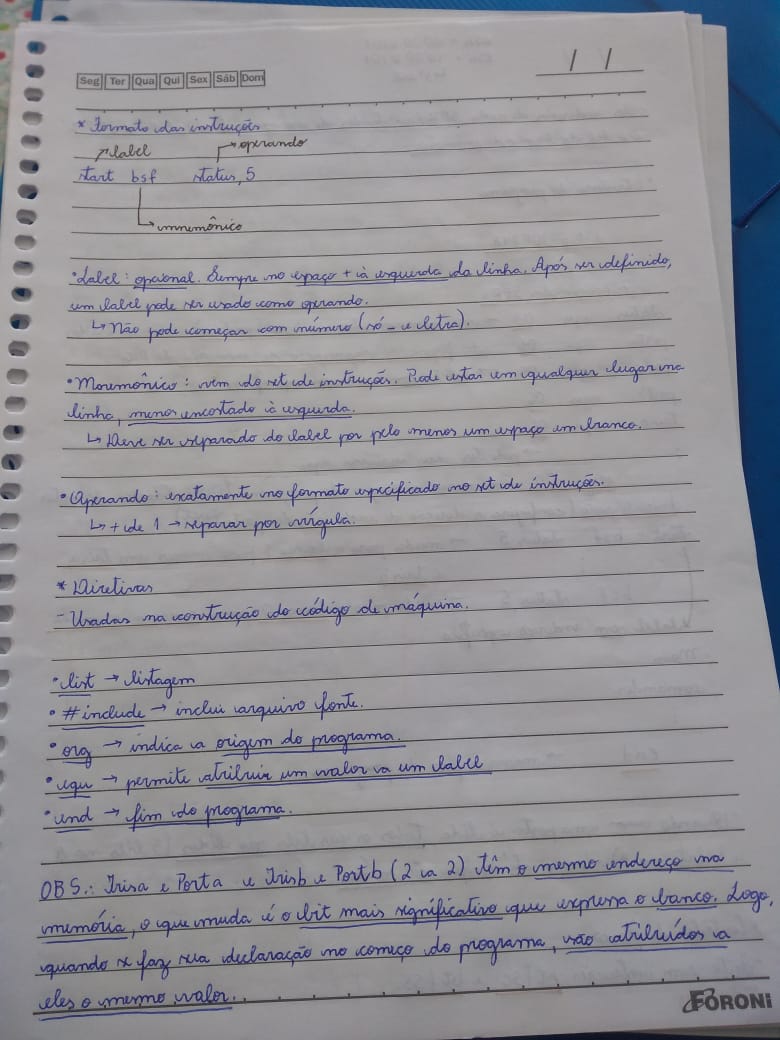 Seg Ter Qua Qui Sex Sáb Dom
/ /
* Formato das instruções
label operando
start bsf status, 5
mnemônico
• Label: opcional. Sempre no espaço + à esquerda da linha. Após ser definido,
um label pode ser usado como operando.
↳ Não pode começar com número (só _ e letra).
• Mnemônico: vem do set de instruções. Pode estar em qualquer lugar na
linha, menos encostado à esquerda.
↳ Deve ser separado do label por pelo menos um espaço em branco.
• Operando: exatamente no formato especificado no set de instruções.
↳ + de 1 → separar por vírgula.
* Diretivas
- Usadas na construção do código de máquina.
• list → listagem
• #include → inclui arquivo fonte.
• org → indica a origem do programa.
• equ → permite atribuir um valor a um label
• end → fim do programa.
OBS.: Trisa e Porta e Trisb e Portb (2 a 2) têm o mesmo endereço na
memória, o que muda é o bit mais significativo que expressa o banco. Logo,
quando se faz sua declaração no começo do programa, são atribuídos a
eles o mesmo valor.
FORONI